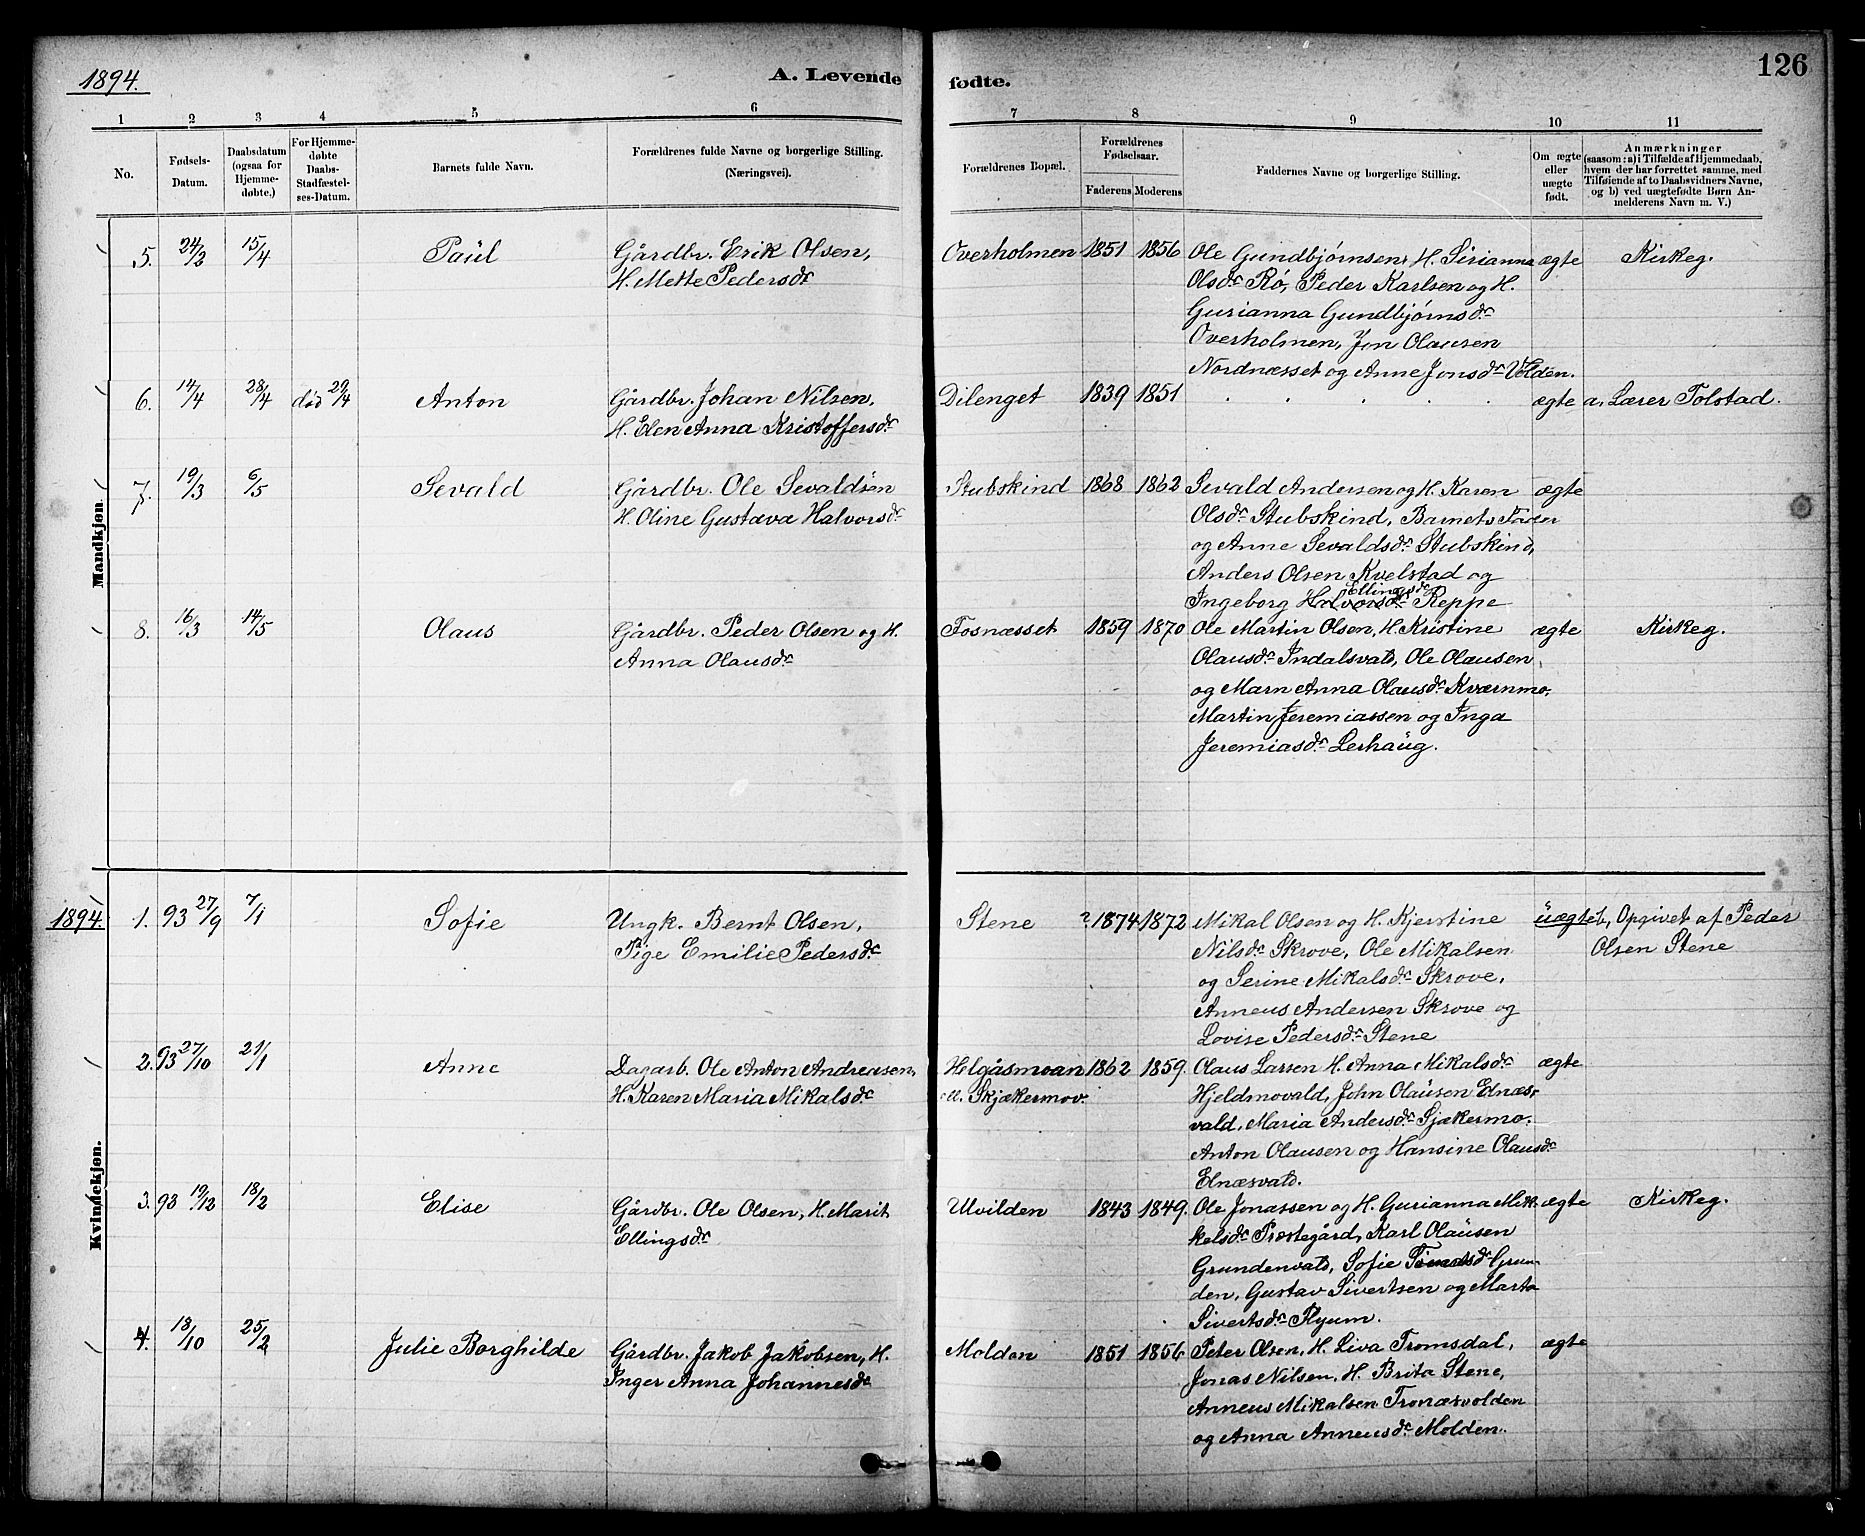 1894.
A. Levende fødte.
126
1 2 3 4 5 6 7 8 9 10 11
No.
Fødsels-Datum.
Daabsdatum (ogsaa for Hjemme-døbte.)
For Hjemme-døbte Daabs-Stadfæstel-ses-Datum.
Barnets fulde Navn.
Forældrenes fulde Navne og borgerlige Stilling. (Næringsvei).
Forældrenes Bopæl.
Forældrenes Fødselsaar.
Faderens Moderens
Faddernes Navne og borgerlige Stilling.
Om ægte eller uægte født.
Anmærkninger (saasom: a) i Tilfælde af Hjemmedaab, hvem der har forrettet samme, med Tilføiende af to Daabsvidners Navne, og b) ved uægtefødte Børn An-melderens Navn m. V.)
Mandkjøn
5. 24/2 15/4 Paul Gårdbr. Erik Olsen, Overholmen 1851 1856 Ole Gundbjørnsen, H. Sirianna ægte Kirkeg.
H. Mette Pedersdr Olsdr Rø, Peder Karlsen og H.
Gurianna Gundbjørnsdr
Overholmen, Jon Olausen
Nordnæsset og Anne Jonsdr Volden.
6. 14/4 28/4 død 29/4 Anton Gårdbr. Johan Nilsen, Dilenget 1839 1851 . . . . . ægte a, Lærer Tolstad.
H. Elen Anna Kristoffersdr
7. 19/3 6/5 Sevald Gårdbr. Ole Sevaldsen Stubskind 1868 1862 Sevald Andersen og H. Karen ægte
H. Oline Gustava Halvorsdr Olsdr Stubskind, Barnets Fader
og Anne Sevaldsdr Stubskind,
Anders Olsen Kvelstad og
Ellingsdr
Ingeborg Halvorsdr Reppe
8. 16/3 14/5 Olaus Gårdbr. Peder Olsen og H. Fosnæsset 1859 1870 Ole Martin Olsen, H. Kristine ægte Kirkeg.
Anna Olausdr Olausdr Indalsvald, Ole Olausen
og Marn Anna Olausdr Kværnmo,
Martin Jeremiassen og Inga
Jeremiasdr Lerhaug.
Kvindekjøn.
1894. 1. 93 27/9 7/1 Sofie Ungk. Bernt Olsen, Stene ? 1874 1872 Mikal Olsen og H. Kjerstine uægte b, Opgivet af Peder
Pige Emilie Pedersdr Nilsdr Skrove, Ole Mikalsen Olsen Stene
og Serine Mikalsdr Skrove,
Anneus Andersen Skrove og
Lovise Pedersdr Stene
2. 93 27/10 21/1 Anne Dagarb. Ole Anton Andreasen, Helgåsmoan 1862 1859. Olaus Larsen H. Anna Mikalsdr ægte
H. Karen Maria Mikalsdr ell. Skjækermov. Hjeldmovald, John Olausen Elnæs-
vald, Maria Andersdr Sjækermo.
Anton Olausen og Hansine Olausdr
Elnæsvald.
3. 93 19/12 18/2 Elise Gårdbr. Ole Olsen, H. Marit Ulvilden 1843 1849. Ole Jonassen og H. Gurianna Mik- ægte Kirkeg.
Ellingsdr kelsdr Præstegård, Karl Olausen
Grundenvald, Sofie Grun-
den, Gustav Sivertsen og Marta
Sivertsdr Ryum.
4. 18/10 25/2 Julie Borghilde Gårdbr. Jakob Jakobsen, H. Molden 1851 1856 Peter Olsen, H. Liva Tromsdal, ægte
Inger Anna Johannesdr Jonas Nilsen, H. Brita Stene,
Anneus Mikalsen Tronæsvolden
og Anna Anneusdr Molden.